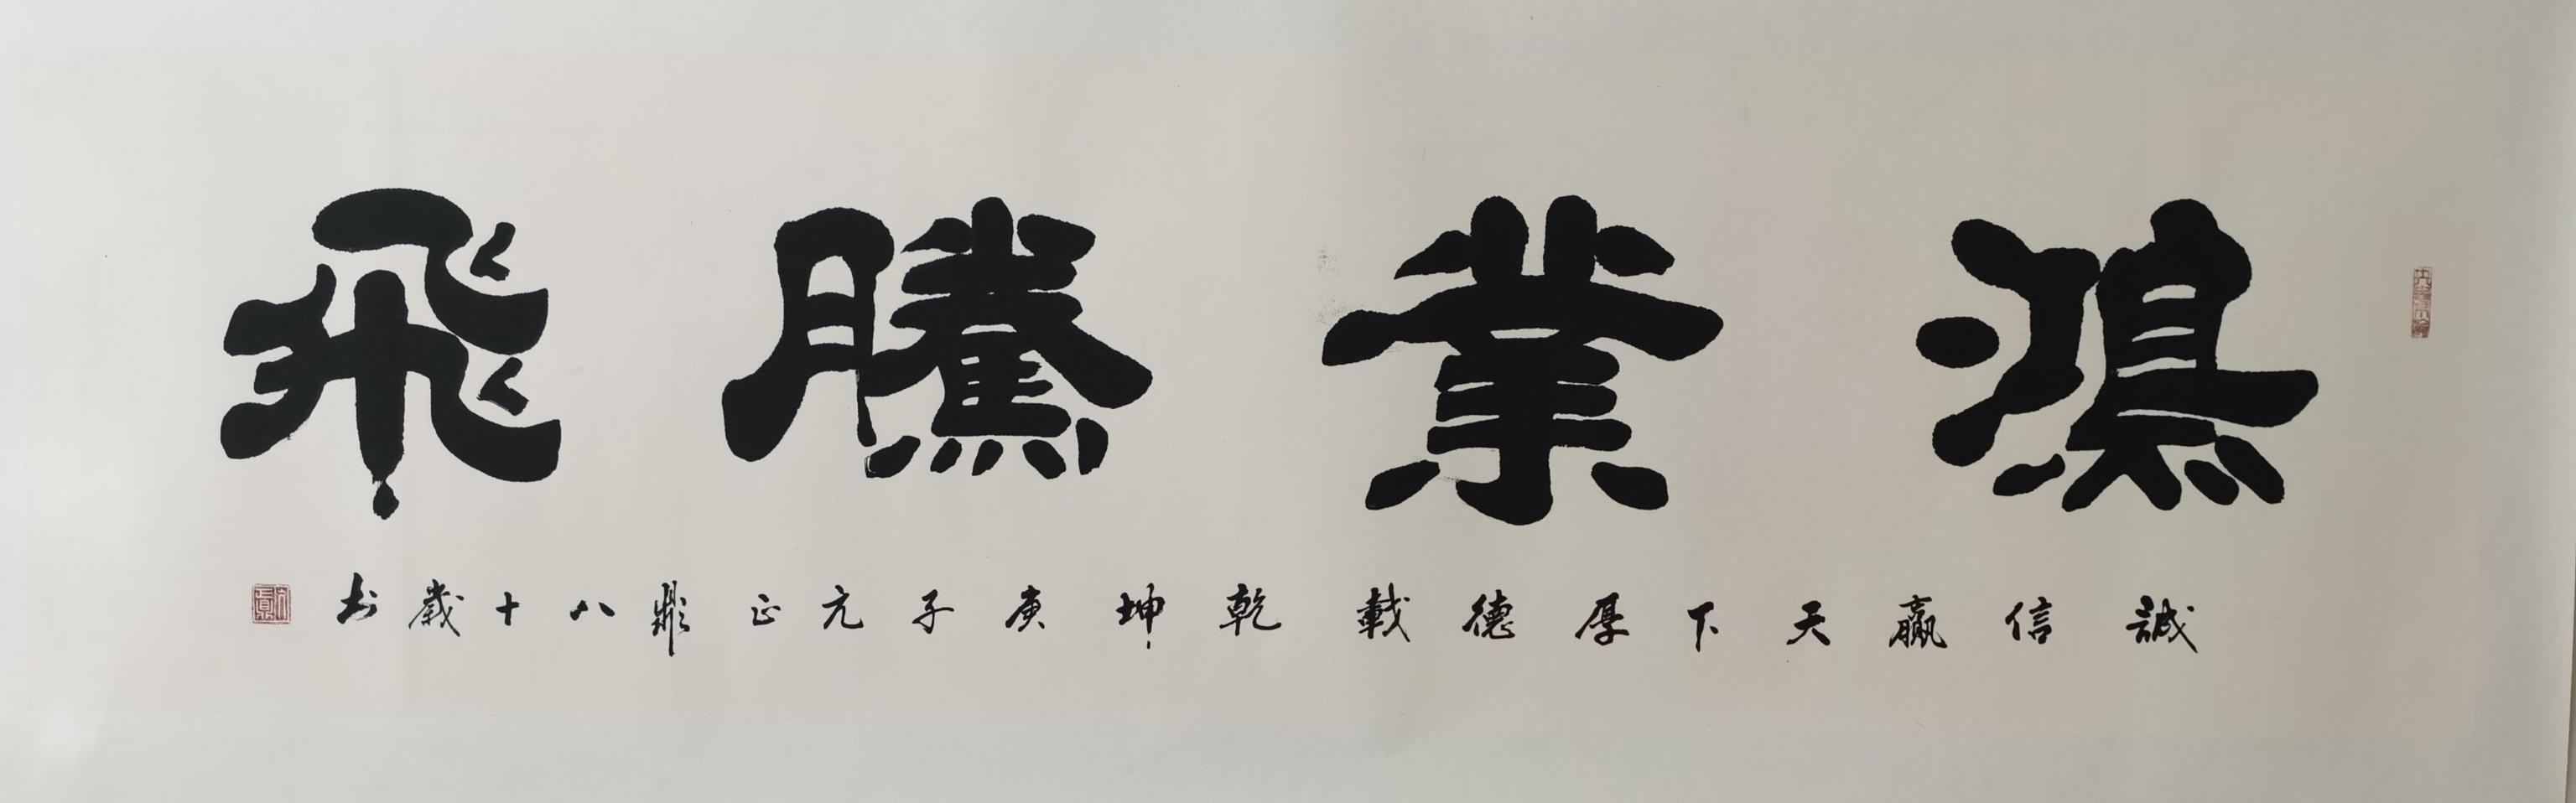 鴻業騰飛
誠信贏天下厚德載乾坤庚子元正鼎八十歲书